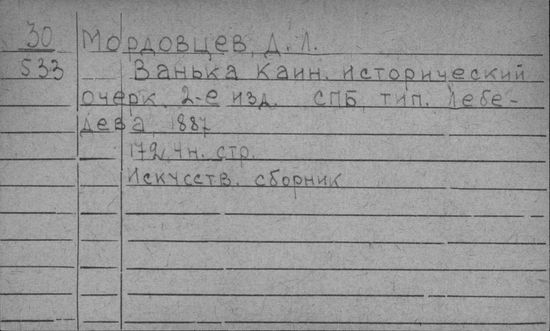 30 Мордовцев, Д. Л.
533 Ванька Каин. исторический
очерк, 2-е изд. СПБ, тип. Лебе-
дева, 1887
179, 4н. стр.
Искусств. сборник